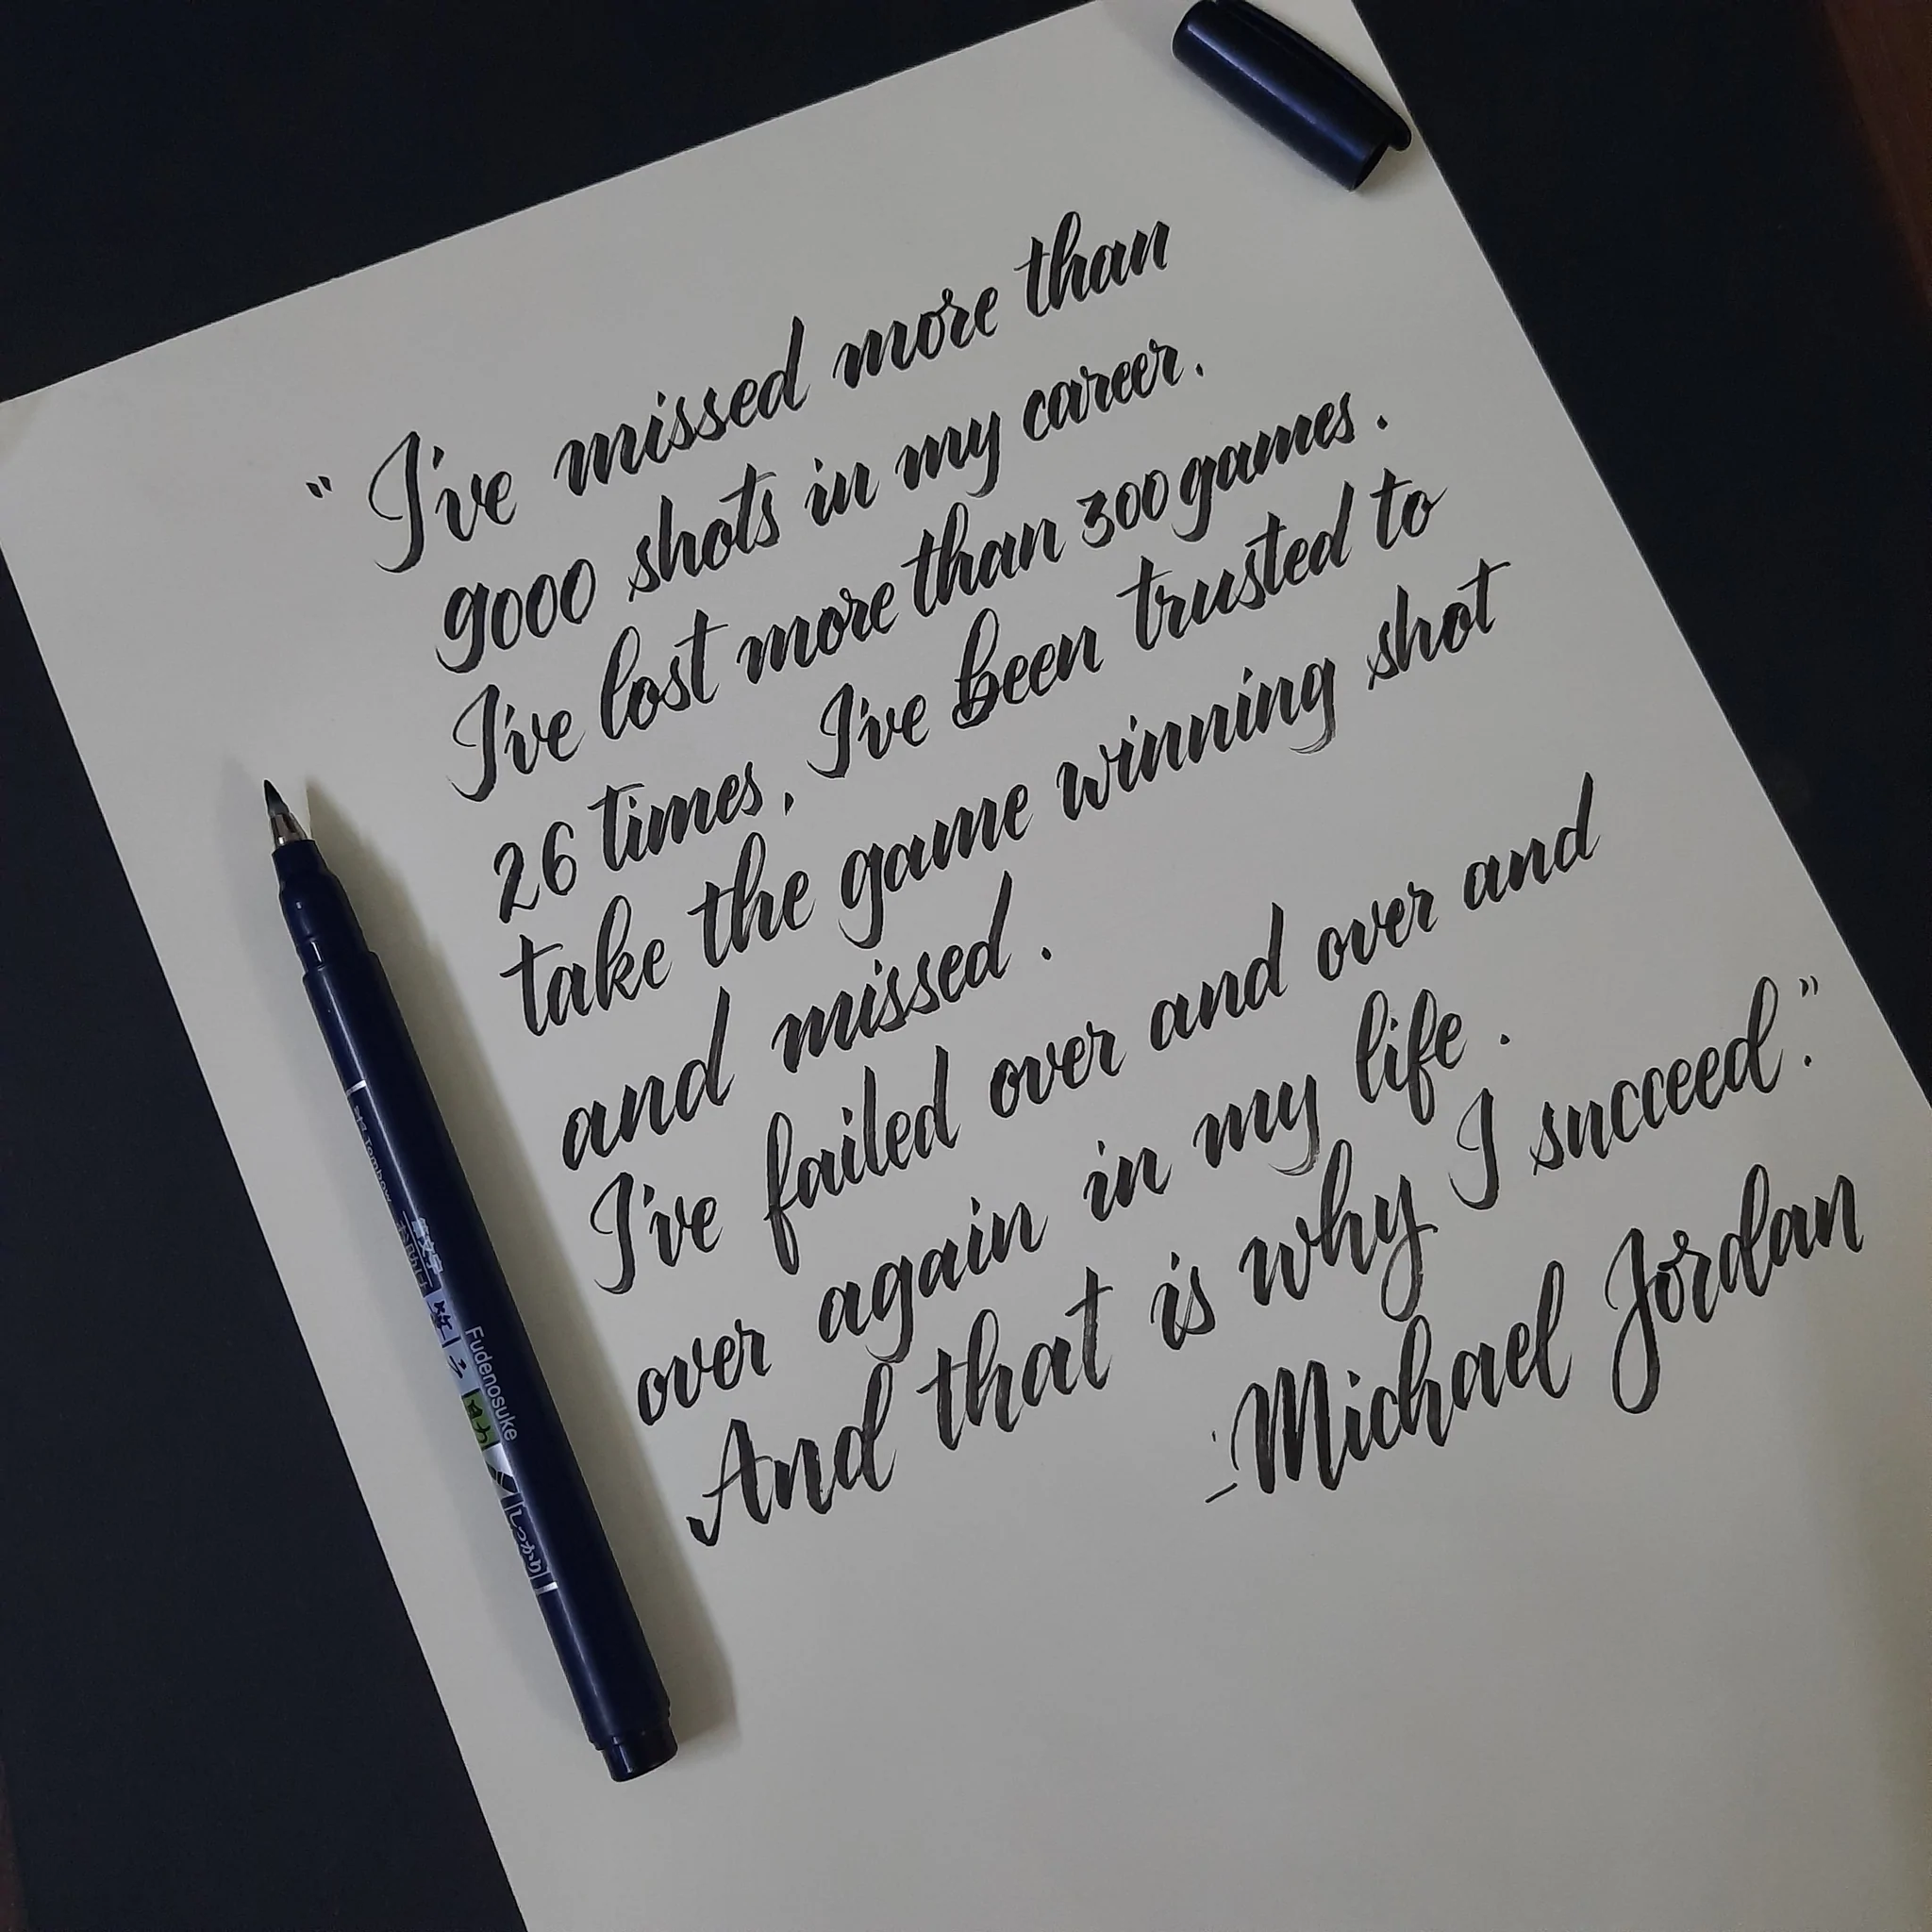 "I've missed more than
9000 shots in my career.
I've lost more than 300 games.
26 times, I've been trusted to
take the game winning shot
and missed.
I've failed over and over and
over again in my life.
And that is why I succeed."
- Michael Jordan
Tombow
Fudenosuke
しっかり